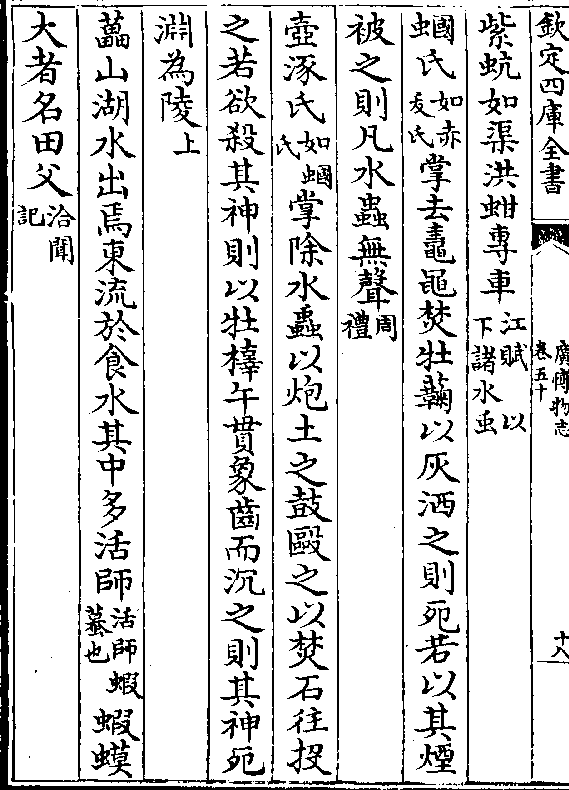 欽定四庫全書
廣博物志
卷五十
十八
紫蚢如渠洪蚶專車江賦 以下諸水虫
蟈氏如赤犮氏掌去鼃黽焚牡蘜以灰洒之則死若以其煙
被之則凡水蟲無聲周禮
壺涿氏如蟈氏掌除水蟲以炮土之鼓毆之以焚石往投
之若欲殺其神則以牡橭午貫象齒而沉之則其神死
淵為陵上
藟山湖水出焉東流於食水其中多活師活師蝦蟇也 蝦蟆
大者名田父洽聞記